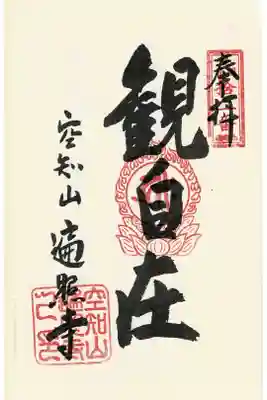 奉拝
観自在
空知山遍照寺
空知山